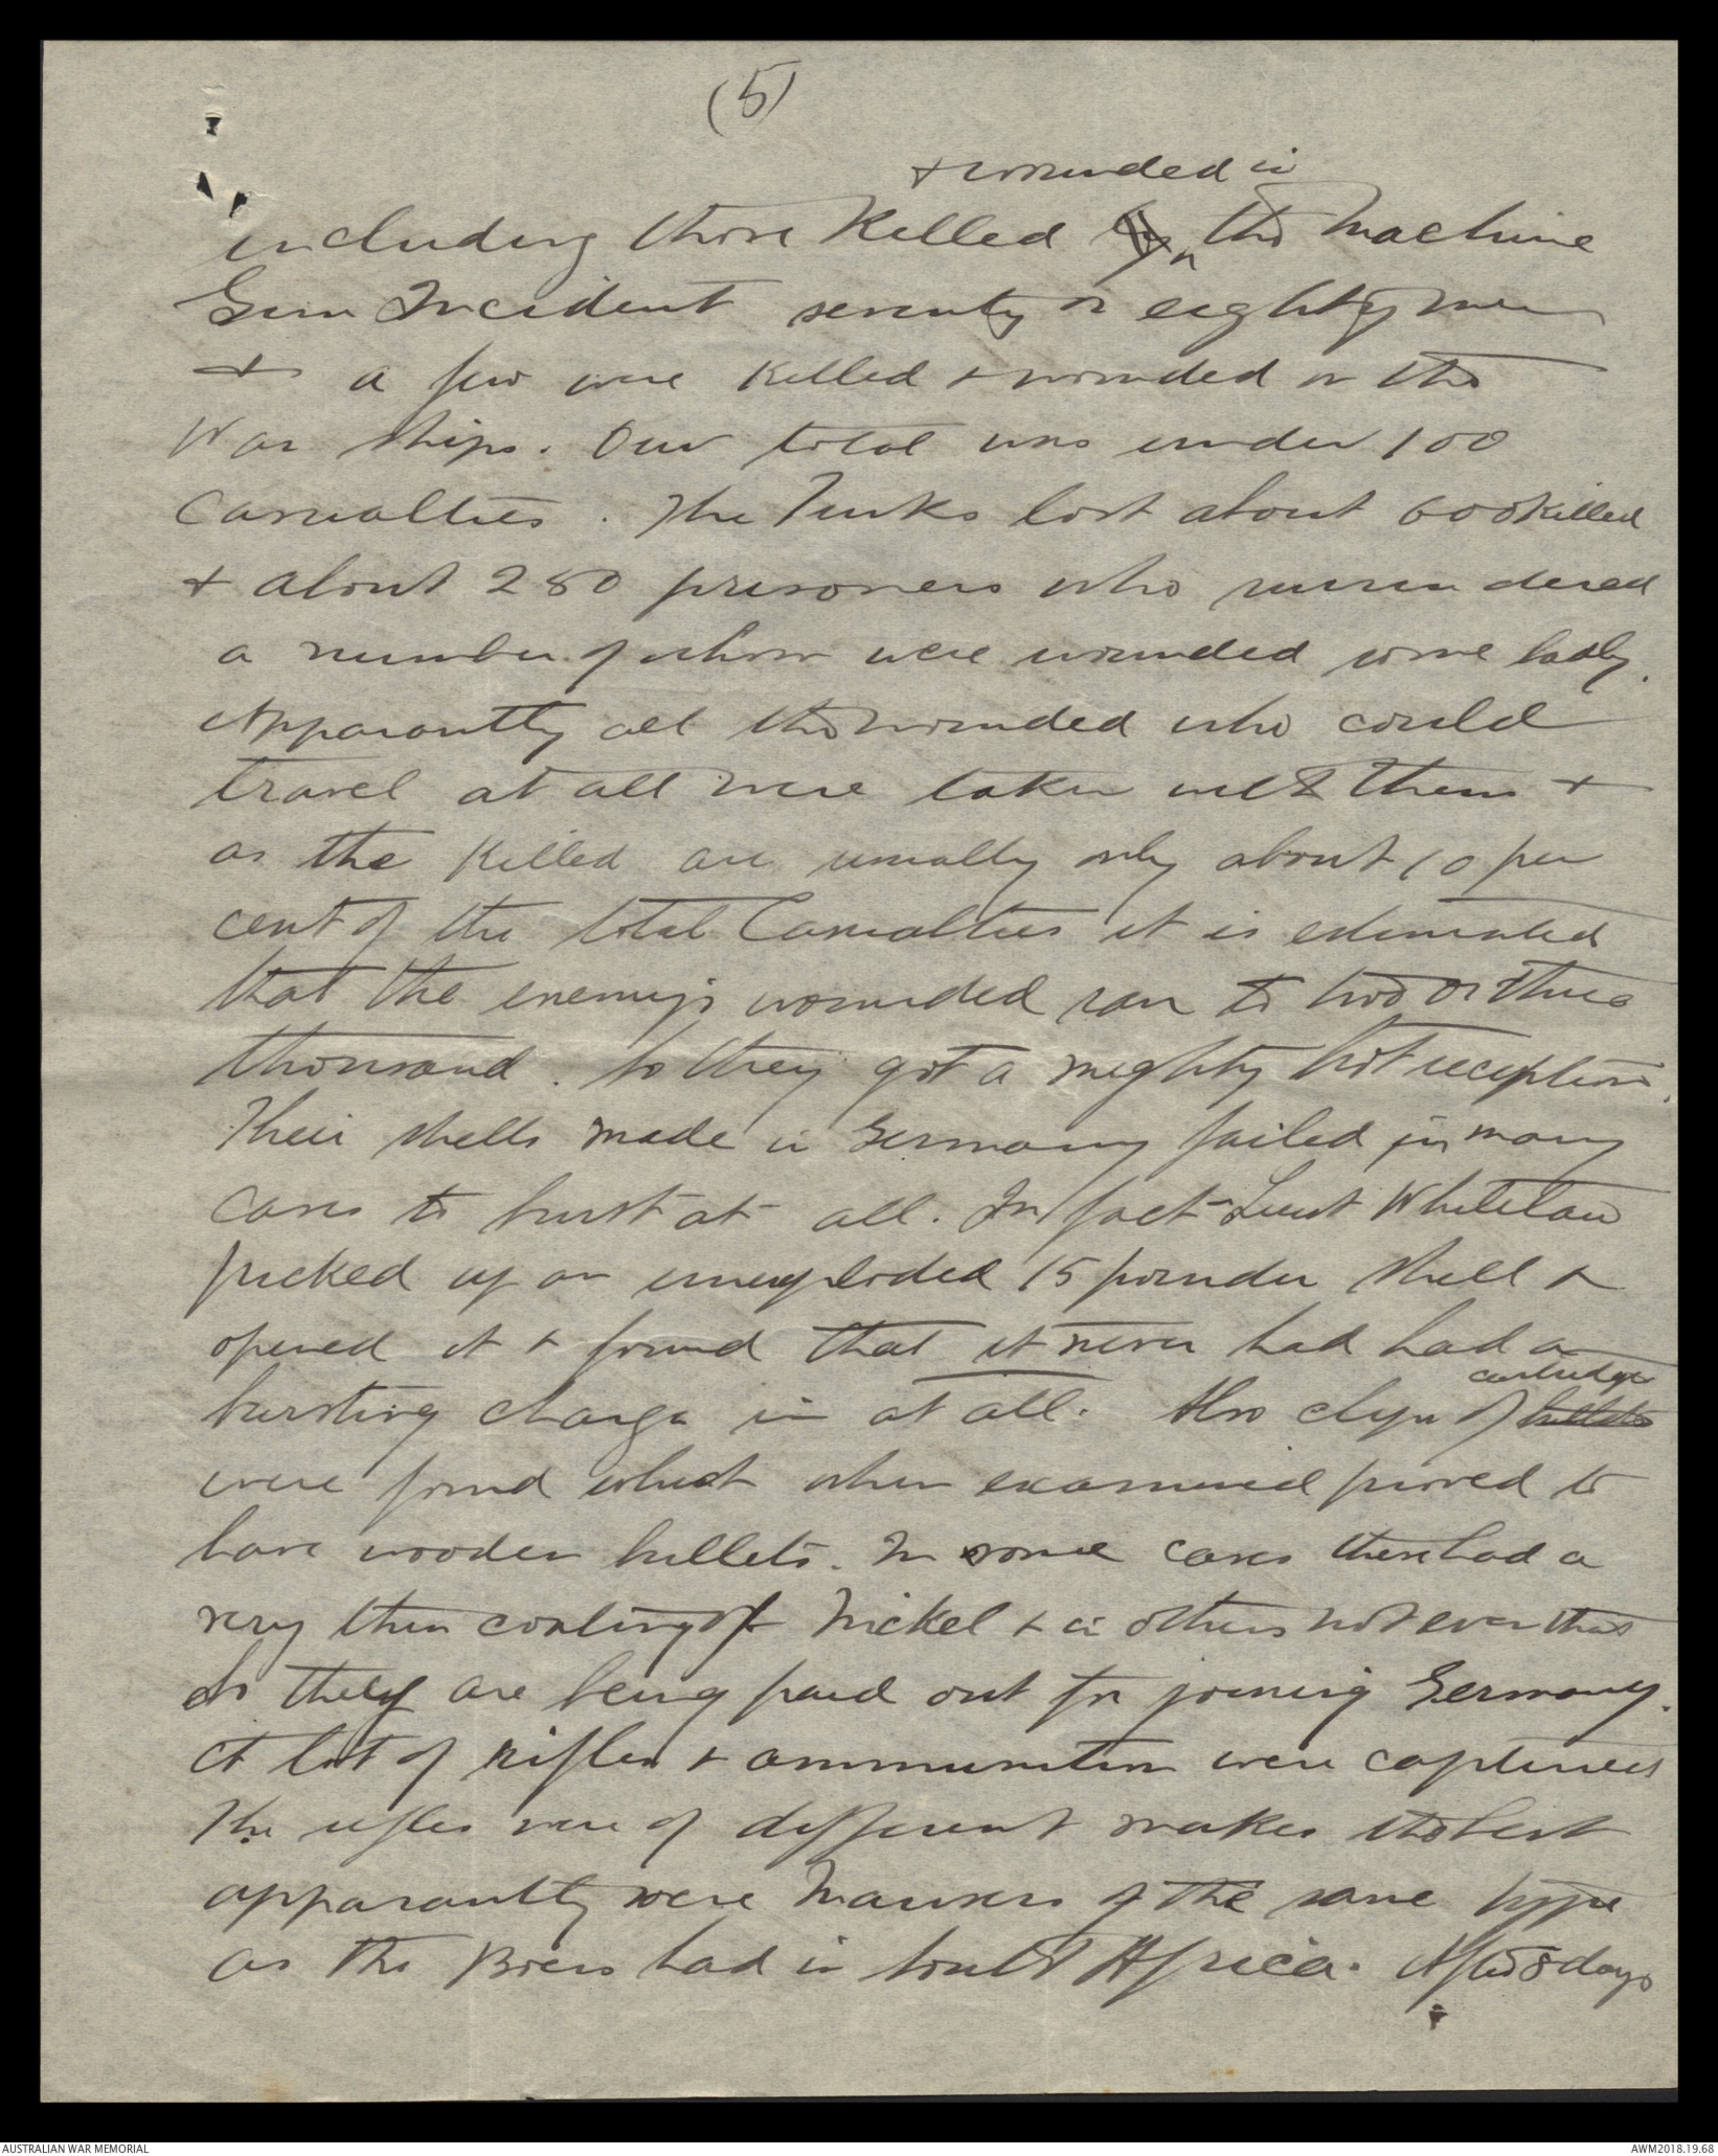 (5)
+ wounded in
including those Killed by the Machine
Gun Incident seventy or eighty men
+ a few were Killed + wounded on the
War Ships. Our total was under 100
Casualties. The Turks lost about 600 Killed
+ about 280 prisoners who surrendered
a number of whom were wounded some badly.
Apparantly all the wounded who could
travel at all were taken with them +
as the Killed are usually only about 10 per
cent of the total Casualties it is estimated
that the enemy's wounded ran to two or three
thousand. So they got a mighty hot reception.
Their shells made in Germany failed in many
cases to burst at all. In fact Lieut Whitelaw
picked up an unexploded 15 pounder shell +
opened it + found that it never had had a
cartridges
bursting charge in at all. Also clips of bullets
were found which when examined proved to
have wooden bullets. In some cases these had a
very thin coating of Nickel + in others not even that
So they are being paid out for joining Germany.
A lot of rifles + ammunition were captured
The rifles were of different makes the best
apparantly were Mausers of the same type
as the Boers had in South Africa. After 8 days
AUSTRALIAN WAR MEMORIAL
AWM2018.19.68